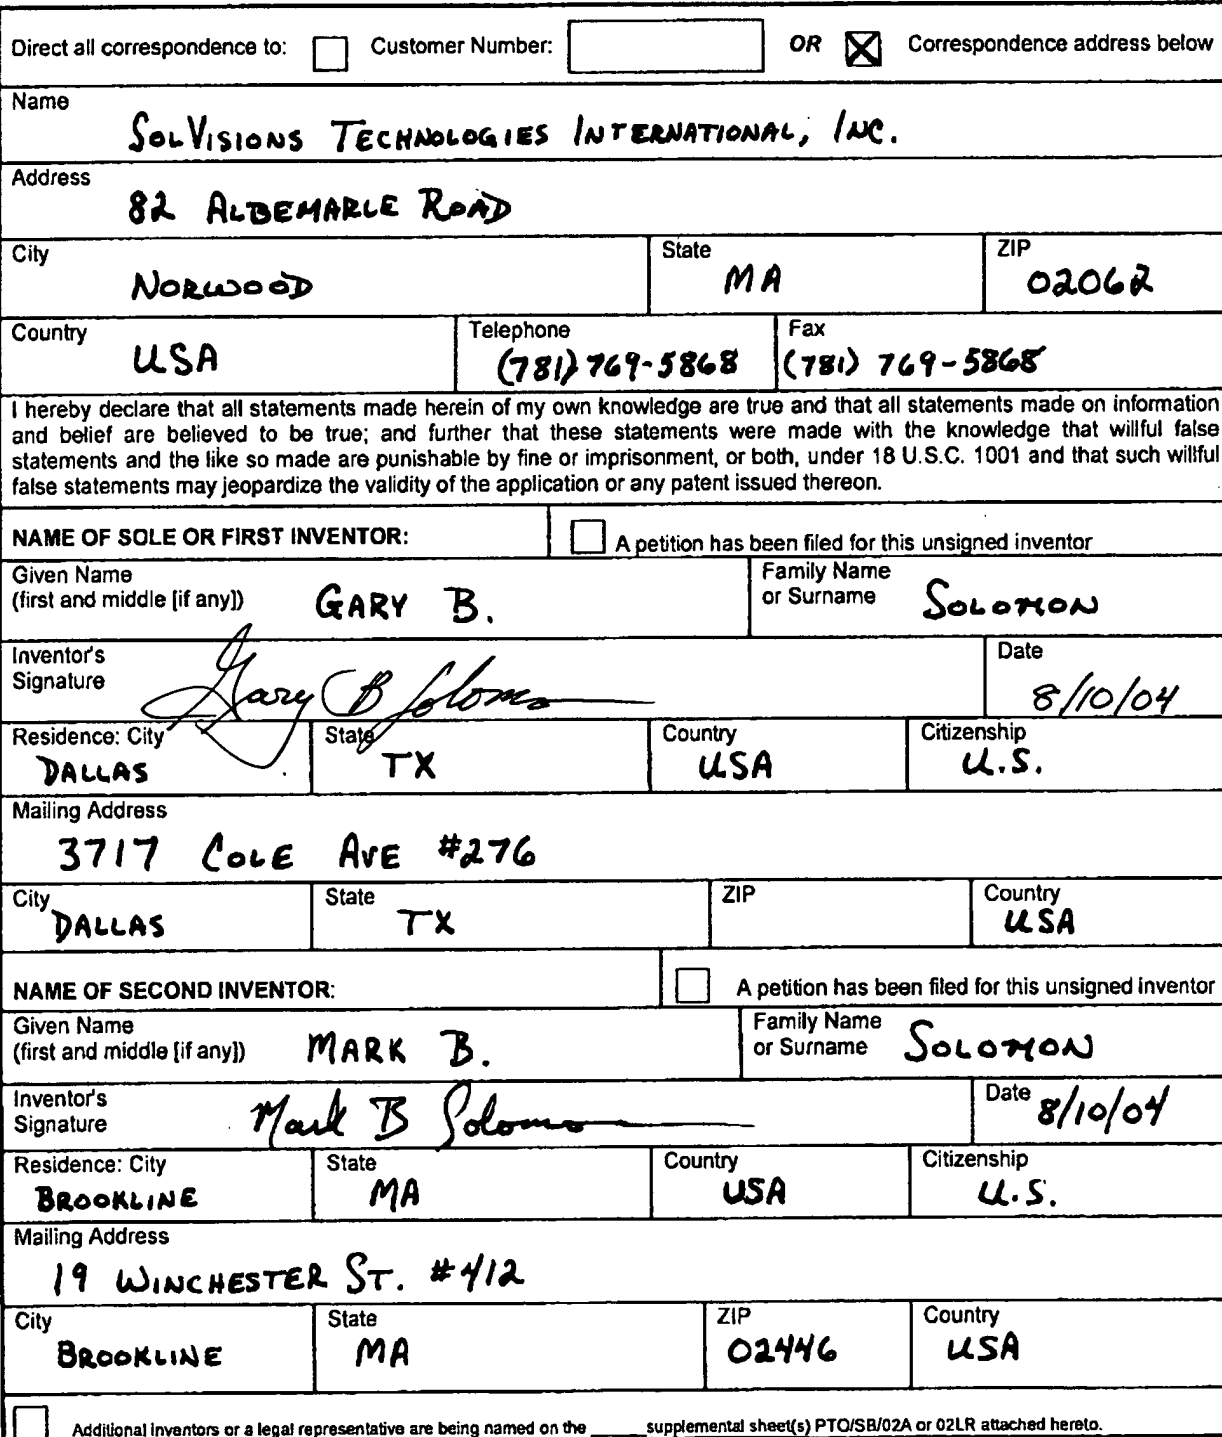 Direct all correspondence to: Customer Number: OR Correspondence address below
Name
SOLVISIONS TECHNOLOGIES INTERNATIONAL, INC.
Address
82 ALBEMARLE ROAD
City State ZIP
NORWOOD MA 02062
Country Telephone Fax
USA (781) 769-5868 (781) 769-5868
I hereby declare that all statements made herein of my own knowledge are true and that all statements made on information
and belief are believed to be true; and further that these statements were made with the knowledge that willful false
statements and the like so made are punishable by fine or imprisonment, or both, under 18 U.S.C. 1001 and that such willful
false statements may jeopardize the validity of the application or any patent issued thereon.
NAME OF SOLE OR FIRST INVENTOR: A petition has been filed for this unsigned inventor
Given Name Family Name
(first and middle [if any]) GARY B. or Surname SOLOMON
Inventor's Date
Signature Gary B Solomon 8/10/04
Residence: City State Country Citizenship
DALLAS TX USA U.S.
Mailing Address
3717 COLE AVE #276
City State ZIP Country
DALLAS TX USA
NAME OF SECOND INVENTOR: A petition has been filed for this unsigned inventor
Given Name Family Name
(first and middle [if any]) MARK B. or Surname SOLOMON
Inventor's Date
Signature Mark B Solomon 8/10/04
Residence: City State Country Citizenship
BROOKLINE MA USA U.S.
Mailing Address
19 WINCHESTER ST. #412
City State ZIP Country
BROOKLINE MA 02446 USA
Additional inventors or a legal representative are being named on the _____ supplemental sheet(s) PTO/SB/02A or 02LR attached hereto.